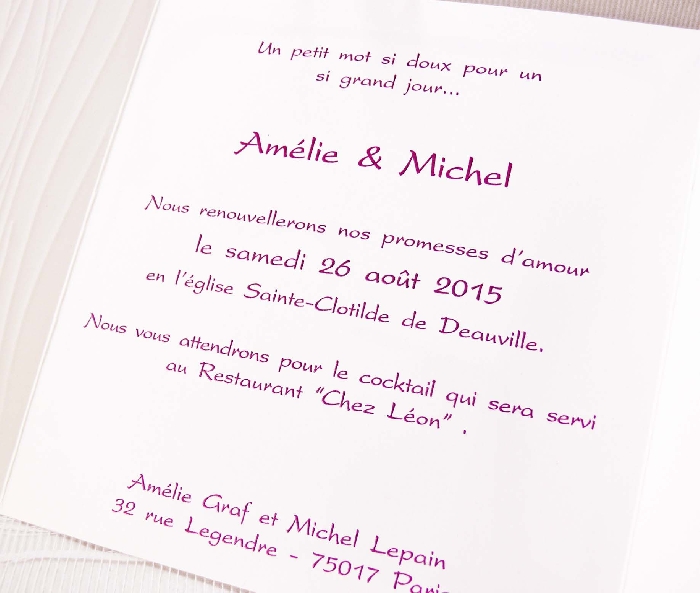 Un petit mot si doux pour un
si grand jour...
Amélie & Michel
Nous renouvellerons nos promesses d'amour
le samedi 26 août 2015
en l'église Sainte-Clotilde de Deauville.
Nous vous attendrons pour le cocktail qui sera servi
au Restaurant "Chez Léon" .
Amélie Graf et Michel Lepain
32 rue Legendre - 75017 Paris